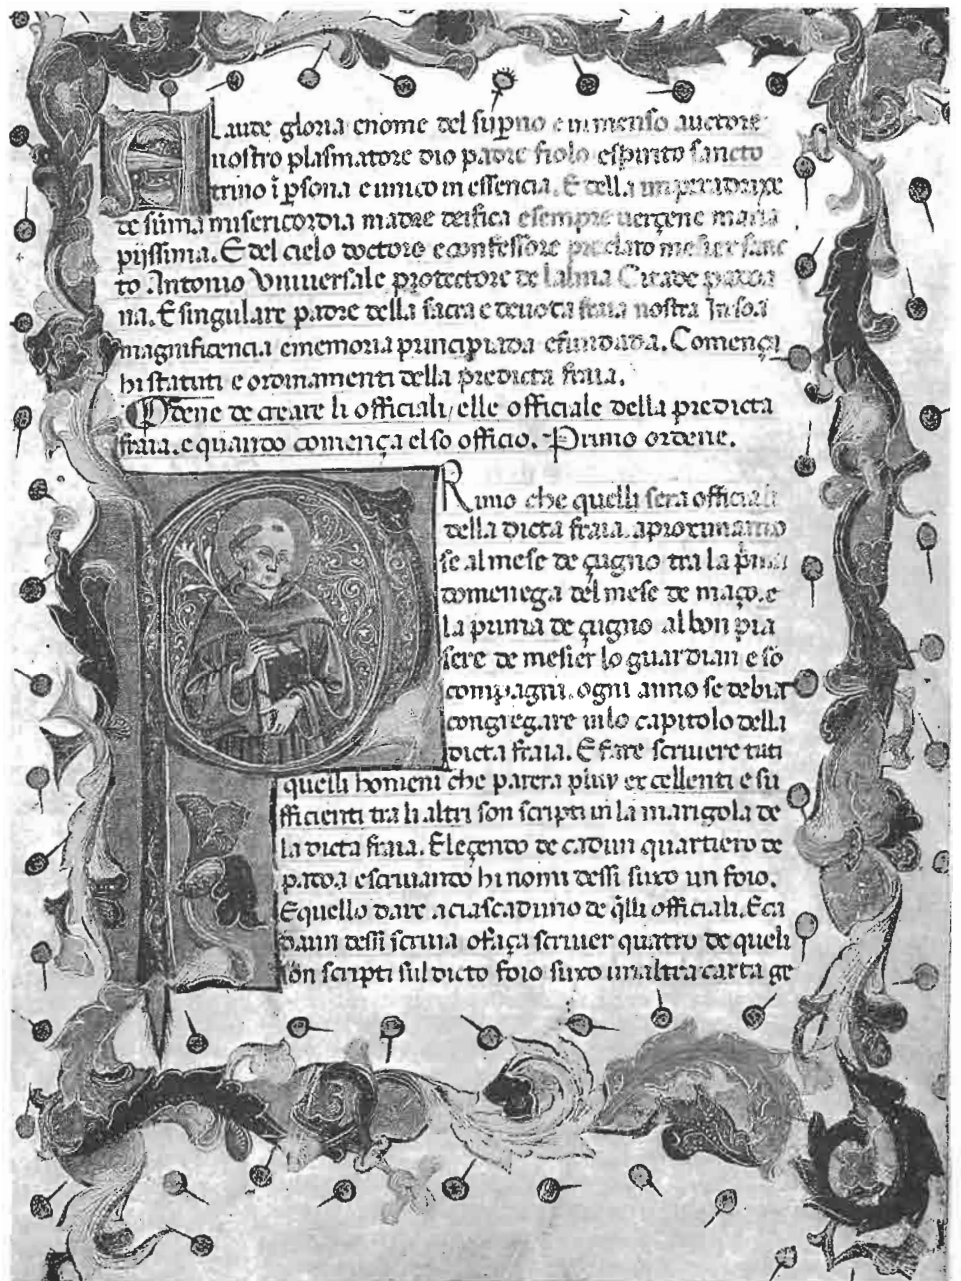 A Laude gloria e nome del sup̱no e inmenso auctore
nostro plasmatore dio padre fiolo e spirito sancto
trino ī ꝑsona e unico in essencia. E della imperadrixe
de sūma misericordia madre deifica e sempre uergene maria
pijssima. E del cielo doctore e confessore preclato mesier sanc
to Antonio Vniuersale protectore de lalma Citade padoa
na. E singulare padre della sacra e deuota fraia nostra In soa
magnificencia e memoria principiada e fundada. Comença
hi statuti e ordinamenti della predicta fraia.
Ordene de creare li officiali/ elle officiale della predicta
fraia. e quando comença el so officio. Primo ordene.
PRimo che quelli sera officiali
della dicta fraia. aproximando
se al mese de çugno tra la p̄ma
domenega del mese de maço. e
la prima de çugno al bon pia
sere de mesier lo guardian e so
compagni. ogni anno se debia
congregare in lo capitolo della
dicta fraia. E fare scriuere tuti
quelli homeni che parera piuy excellenti e su
fficienti tra li altri son scripti in la marigola de
la dicta fraia. Eleçendo de cadun quartiero de
padoa e scriuando hi nomi dessi suxo un foio.
E quello dare a ciascaduno de q̄lli officiali. E ca
daun dessi scriua o faça scriuer quatro de queli
son scripti sul dicto foio suxo unaltra carta ge